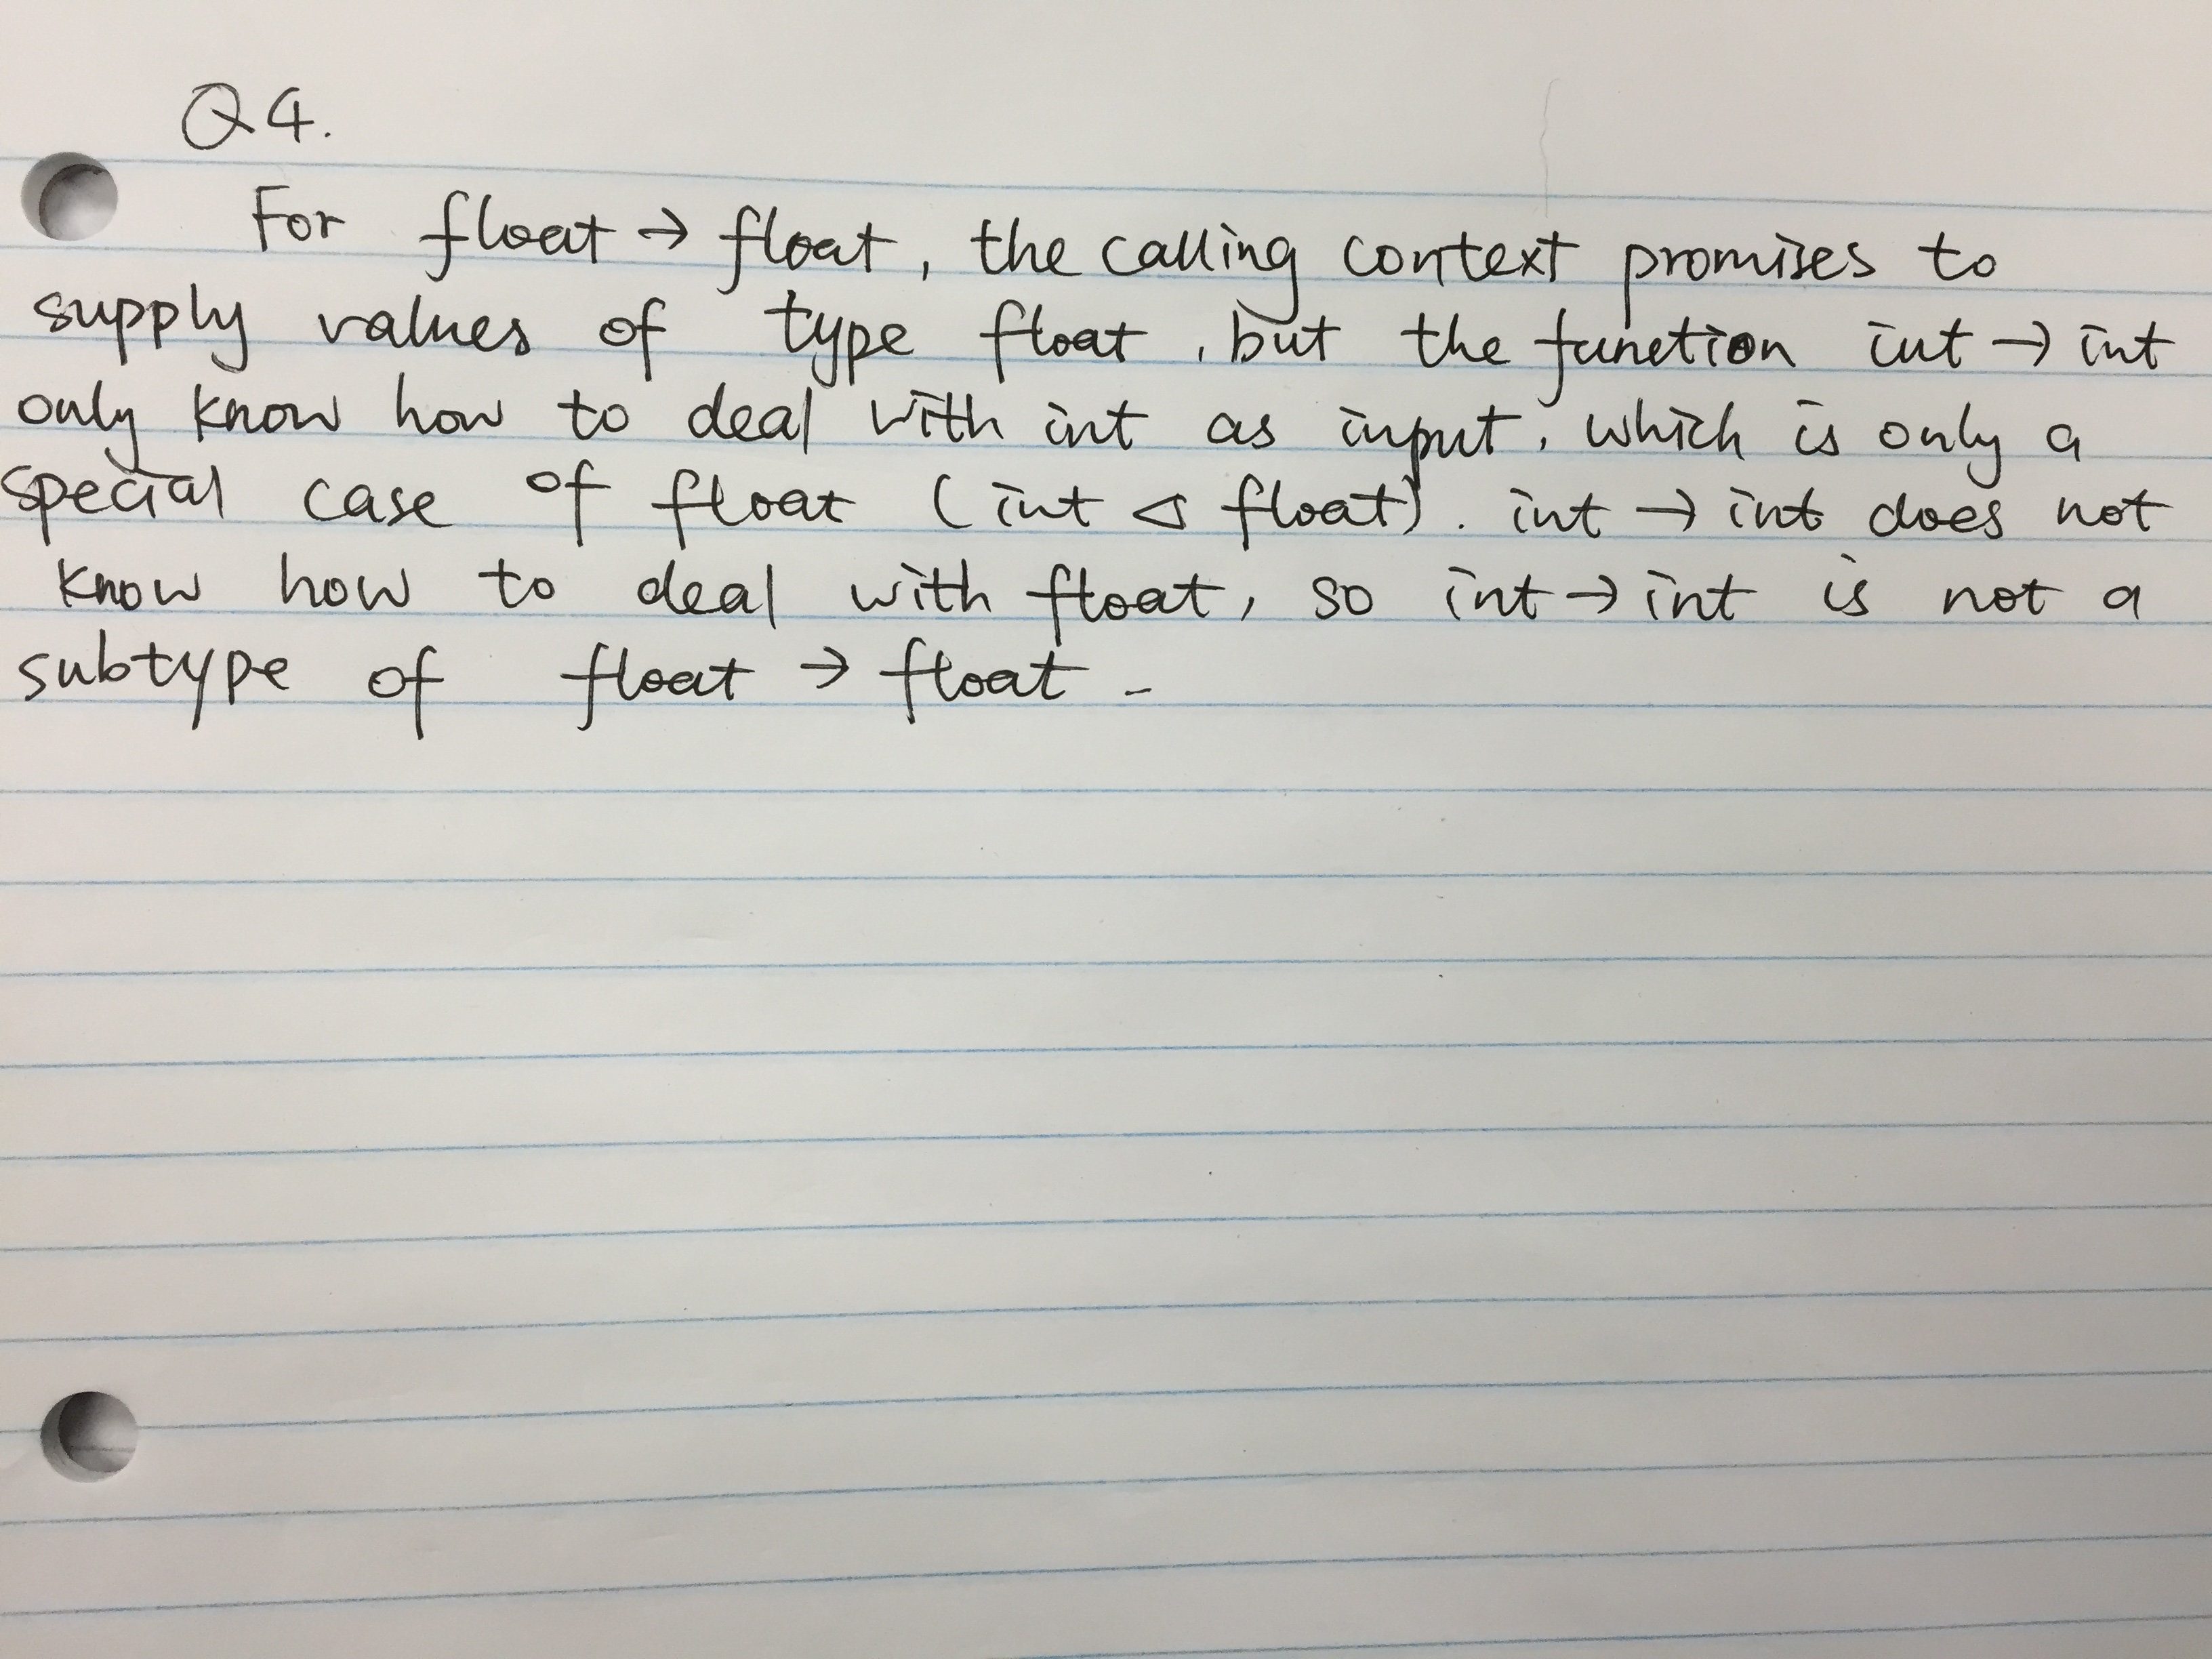 Q4.
For float → float, the calling context promises to
supply values of type float, but the function int → int
only know how to deal with int as input, which is only a
special case of float (int ◁ float). int → int does not
know how to deal with float, so int → int is not a
subtype of float → float.